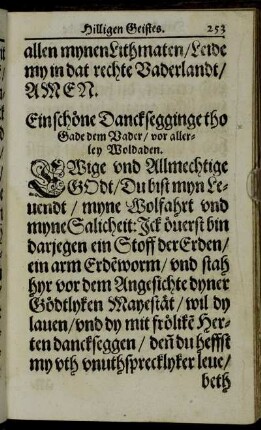 Hilligen Geistes. 253
allen mynen Lithmaten/Leide
my in dat rechte Vaderlandt/
AMEN.
Ein schöne Dancksegginge tho
Gade dem Vader/vor aller-
ley Woldaden.
EWige vnd Allmechtige
GOdt/Du bist myn Le-
uendt/myne Wolfahrt vnd
myne Salicheit: Jck öuerst bin
darjegen ein Stoff der Erden/
ein arm Erdēworm/vnd stah
hyr vor dem Angesichte dyner
Gödtlyken Mayestät/wil dy
lauen/vnd dy mit frölikē Her-
ten danckseggen/deñ du heffst
my vth vnuthsprecklyker leue/
beth